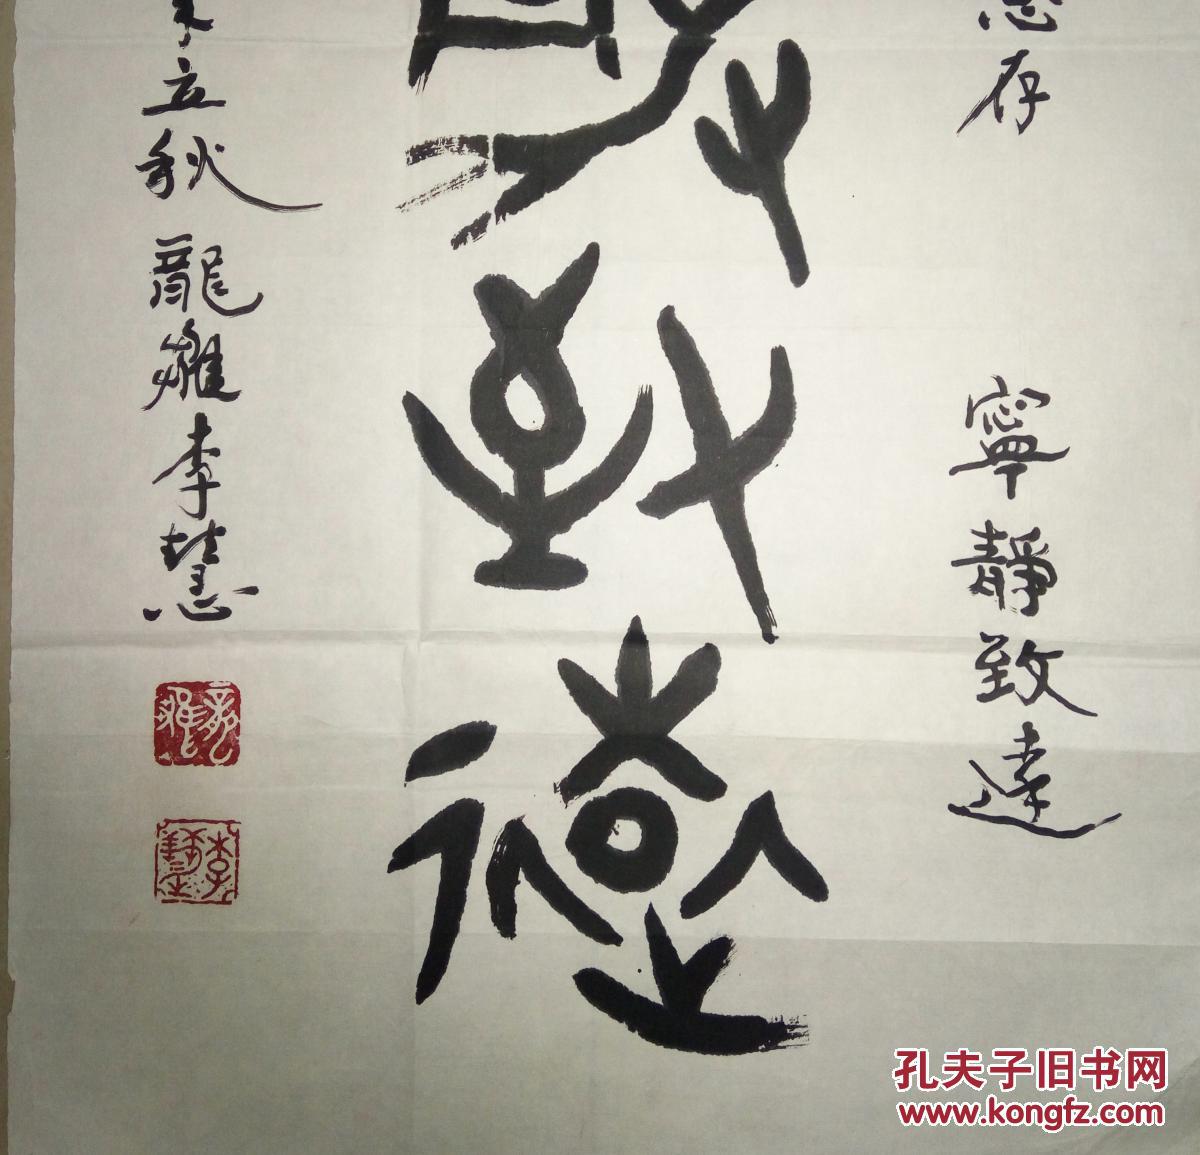 存 寧靜致遠
靜致遠
立秋 龍 李慧
李慧
孔夫子旧书网
www.kongfz.com